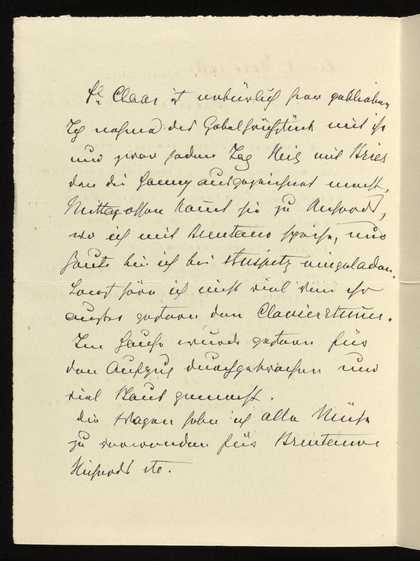 Frl. Claar ist natürlich hier geblieben,
Ich nehme das Gabelfrühstück mit ihr
und zwar jeden Tag Reis mit Bries
den die Fanny ausgezeichnet macht,
Mittagessen kommt sie zu
wo ich mit Brentano speise, und
heute bin ich bei eingeladen.
Sonst höre ich nicht viel von ihr
außer gestern den
Im Hause wurde gestern für
den Aufzug durchgebrochen und
viel Staub gemacht.
Die Wagen habe ich alle Mühe
zu verwenden für Brentano
etc.